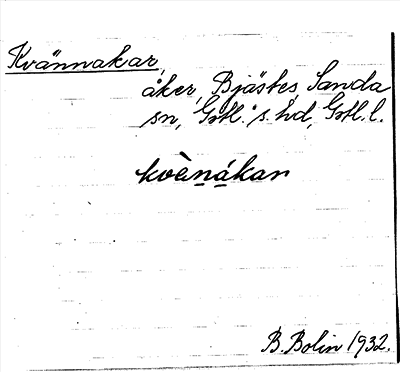 Kvännakar,
åker, Bjästes, Sanda
sn, Gotl. s. hd, Gotl. l.
kvènákar
B. Bolin 1932.